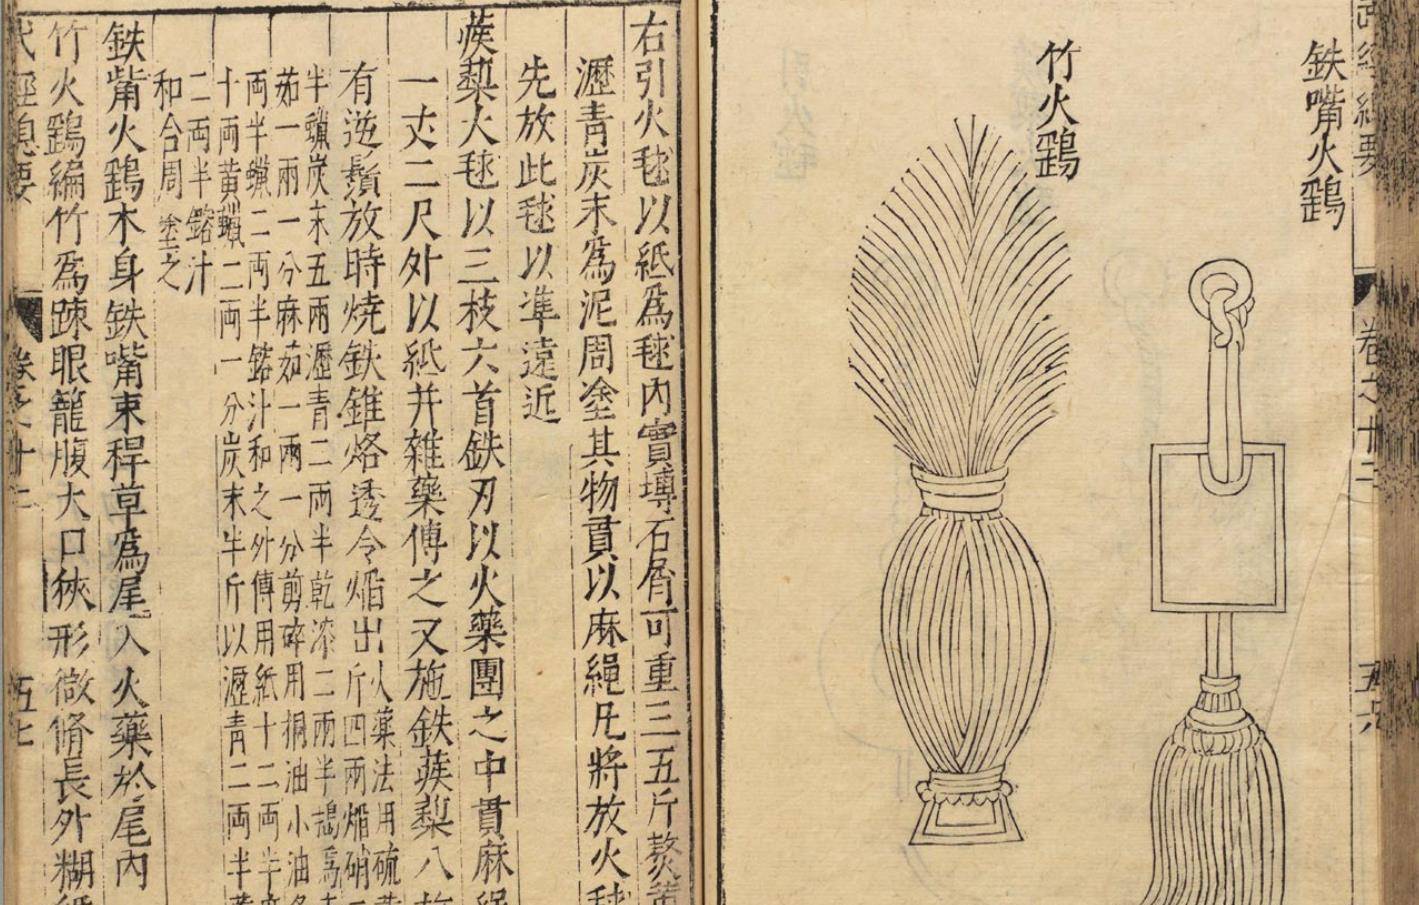 武經總要 卷之十二 五六
鉄嘴火鷂
竹火鷂
右引火毬以紙爲毬內實塼石屑可重三五斤熬黃
瀝青炭末爲泥周塗其物貫以麻繩凡將放火毬
先放此毬以準遠近
蒺蔾火毬以三枝六首鉄刃以火藥團之中貫麻繩
一丈二尺外以紙并雜藥傅之又施鉄蒺蔾八枚
有逆鬚放時燒鉄錐烙透令焰出
火藥法用硫黃
斤四兩焰硝二
半麄炭末五兩瀝青二兩半乾漆二兩半搗爲末
茹一兩一分麻茹一兩一分剪碎用桐油小油各
両半蠟二両半鎔汁和之外傅用紙十二両半麻
十両黃蠟二両一分炭末半斤以瀝青二両半黃
二両半鎔汁
和合周塗之
鉄觜火鷂木身鉄嘴束稈草爲尾入火藥於尾內
竹火鷂編竹爲踈眼籠腹大口狹形微脩長外糊紙
武經總要 卷之十二 五七